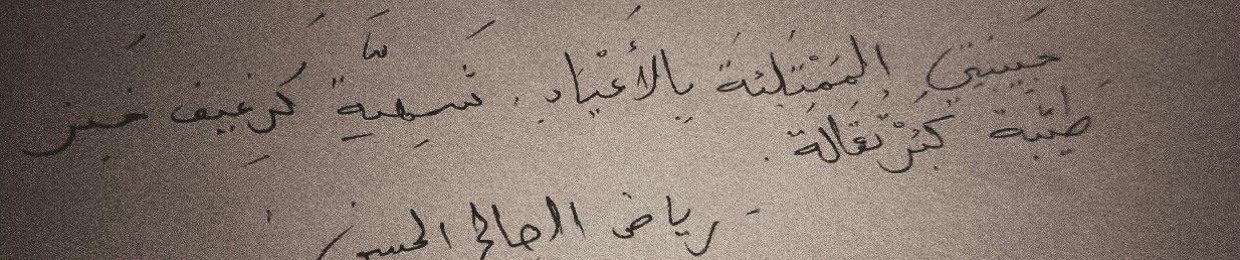 حبيبتي المُمْتلئة بالأعْياد. شهيّة كَرغيف خبز
طيّبة كبُرْتقالة.
- رياض الصالح الحسين